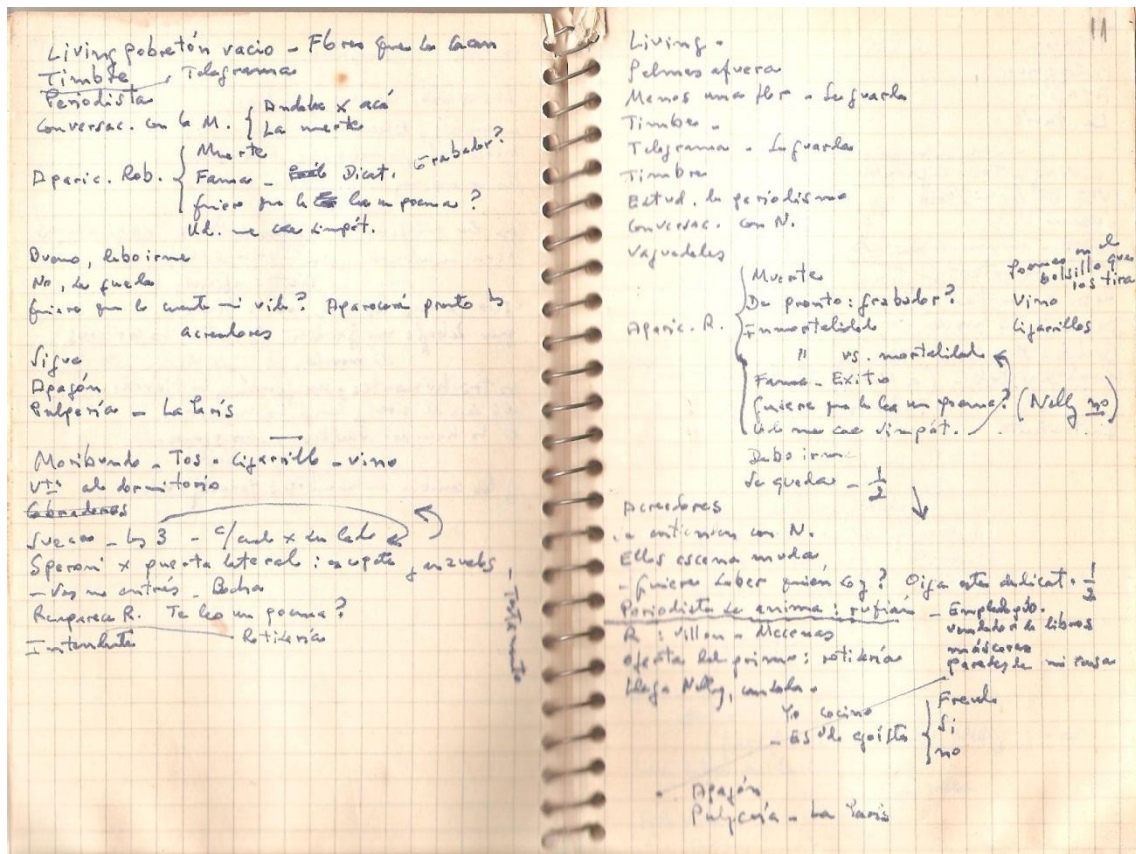 Living pobretón vacío - Flores que le traen
Timbre, Telegrama
Periodista
Conversac. con la M. { Andaba x acá
La muerte
Aparic. Rob. { Muerte
Fama - Dicat. Grabador?
Quiere que le lea un poema?
Ud. me cae simpát.
Bueno, debo irme
No, se queda
Quiere que le cuente mi vida? Aparecerán pronto los
acreedores
Sigue
Apagón
Pulpería - La París
Moribundo - Tos - Cigarrillo - vino
al dormitorio
Cobradores
Suecos - los 3 - c/cual x su lado
Speroni x puerta lateral: escopeta
- Vos no entrás. Bocha
Reaparece R. Te leo un poema?
Intendente Rotisería
Testamento
11
Living -
Pelmas afuera
Menos una flor - Se guarda
Timbre -
Telegrama - Lo guarda
Timbre
Estud. de periodismo
Conversac. con N.
Vaguedades
Aparic. R. { Muerte
De pronto: grabador?
Inmortalidad
" vs. mortalidad
Fama - Exito
Quiere que le lea un poema? (Nelly no)
Ud. me cae simpát.
poemas en el
bolsillo que
los tira
Vino
Cigarrillos
Debo irme
Se queda - 1/2
Acreedores
con N.
Ellos escena muda
- Quiere saber quién soy? Oiga esta dedicat. 1/2
Periodista se anima: rufián - Empleo
vendedor de libros
máscaras
paredes de mi casa
R: Villon - Mecenas
Oferta del primo: rotisería
Llega Nelly,
Yo cocino
- Es Ud. egoísta { Freud
Sí
no
Apagón
Pulpería - La París